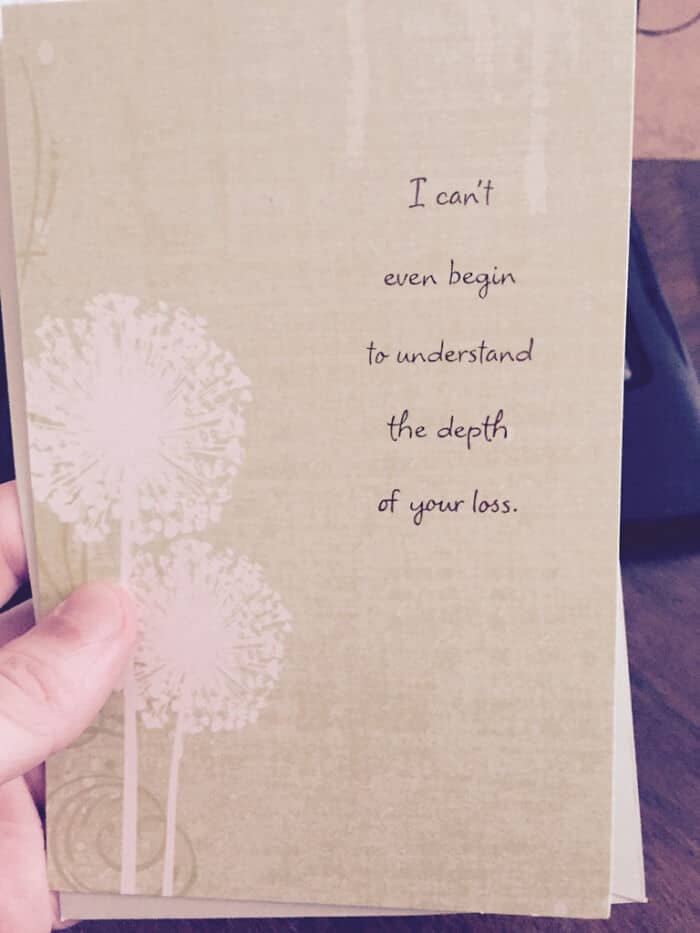 I can't
even begin
to understand
the depth
of your loss.